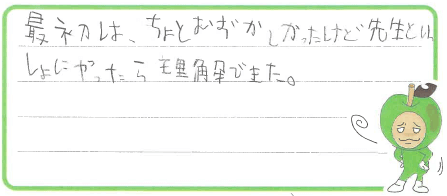 最初は、ちょとむずかしかったけど先生とい
しょにやったら理解できた。